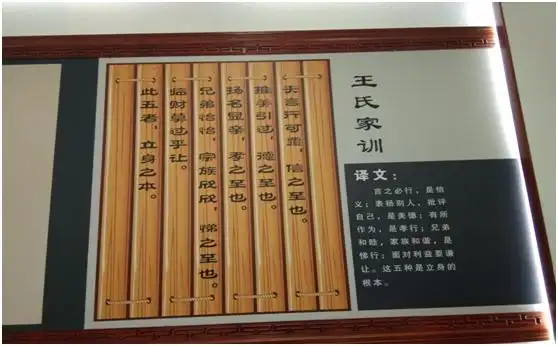 王氏家训
夫言行可覆，信之至也。
推美引过，德之至也。
扬名显亲，孝之至也。
兄弟怡怡，宗族欣欣，悌之至也。
临财莫过乎让。
此五者，立身之本。
译文：
言之必行，是信
义；表扬别人，批评
自己，是美德；有所
作为，是孝行；兄弟
和睦，家族和谐，是
悌行；面对利益要谦
让。这五种是立身的
根本。